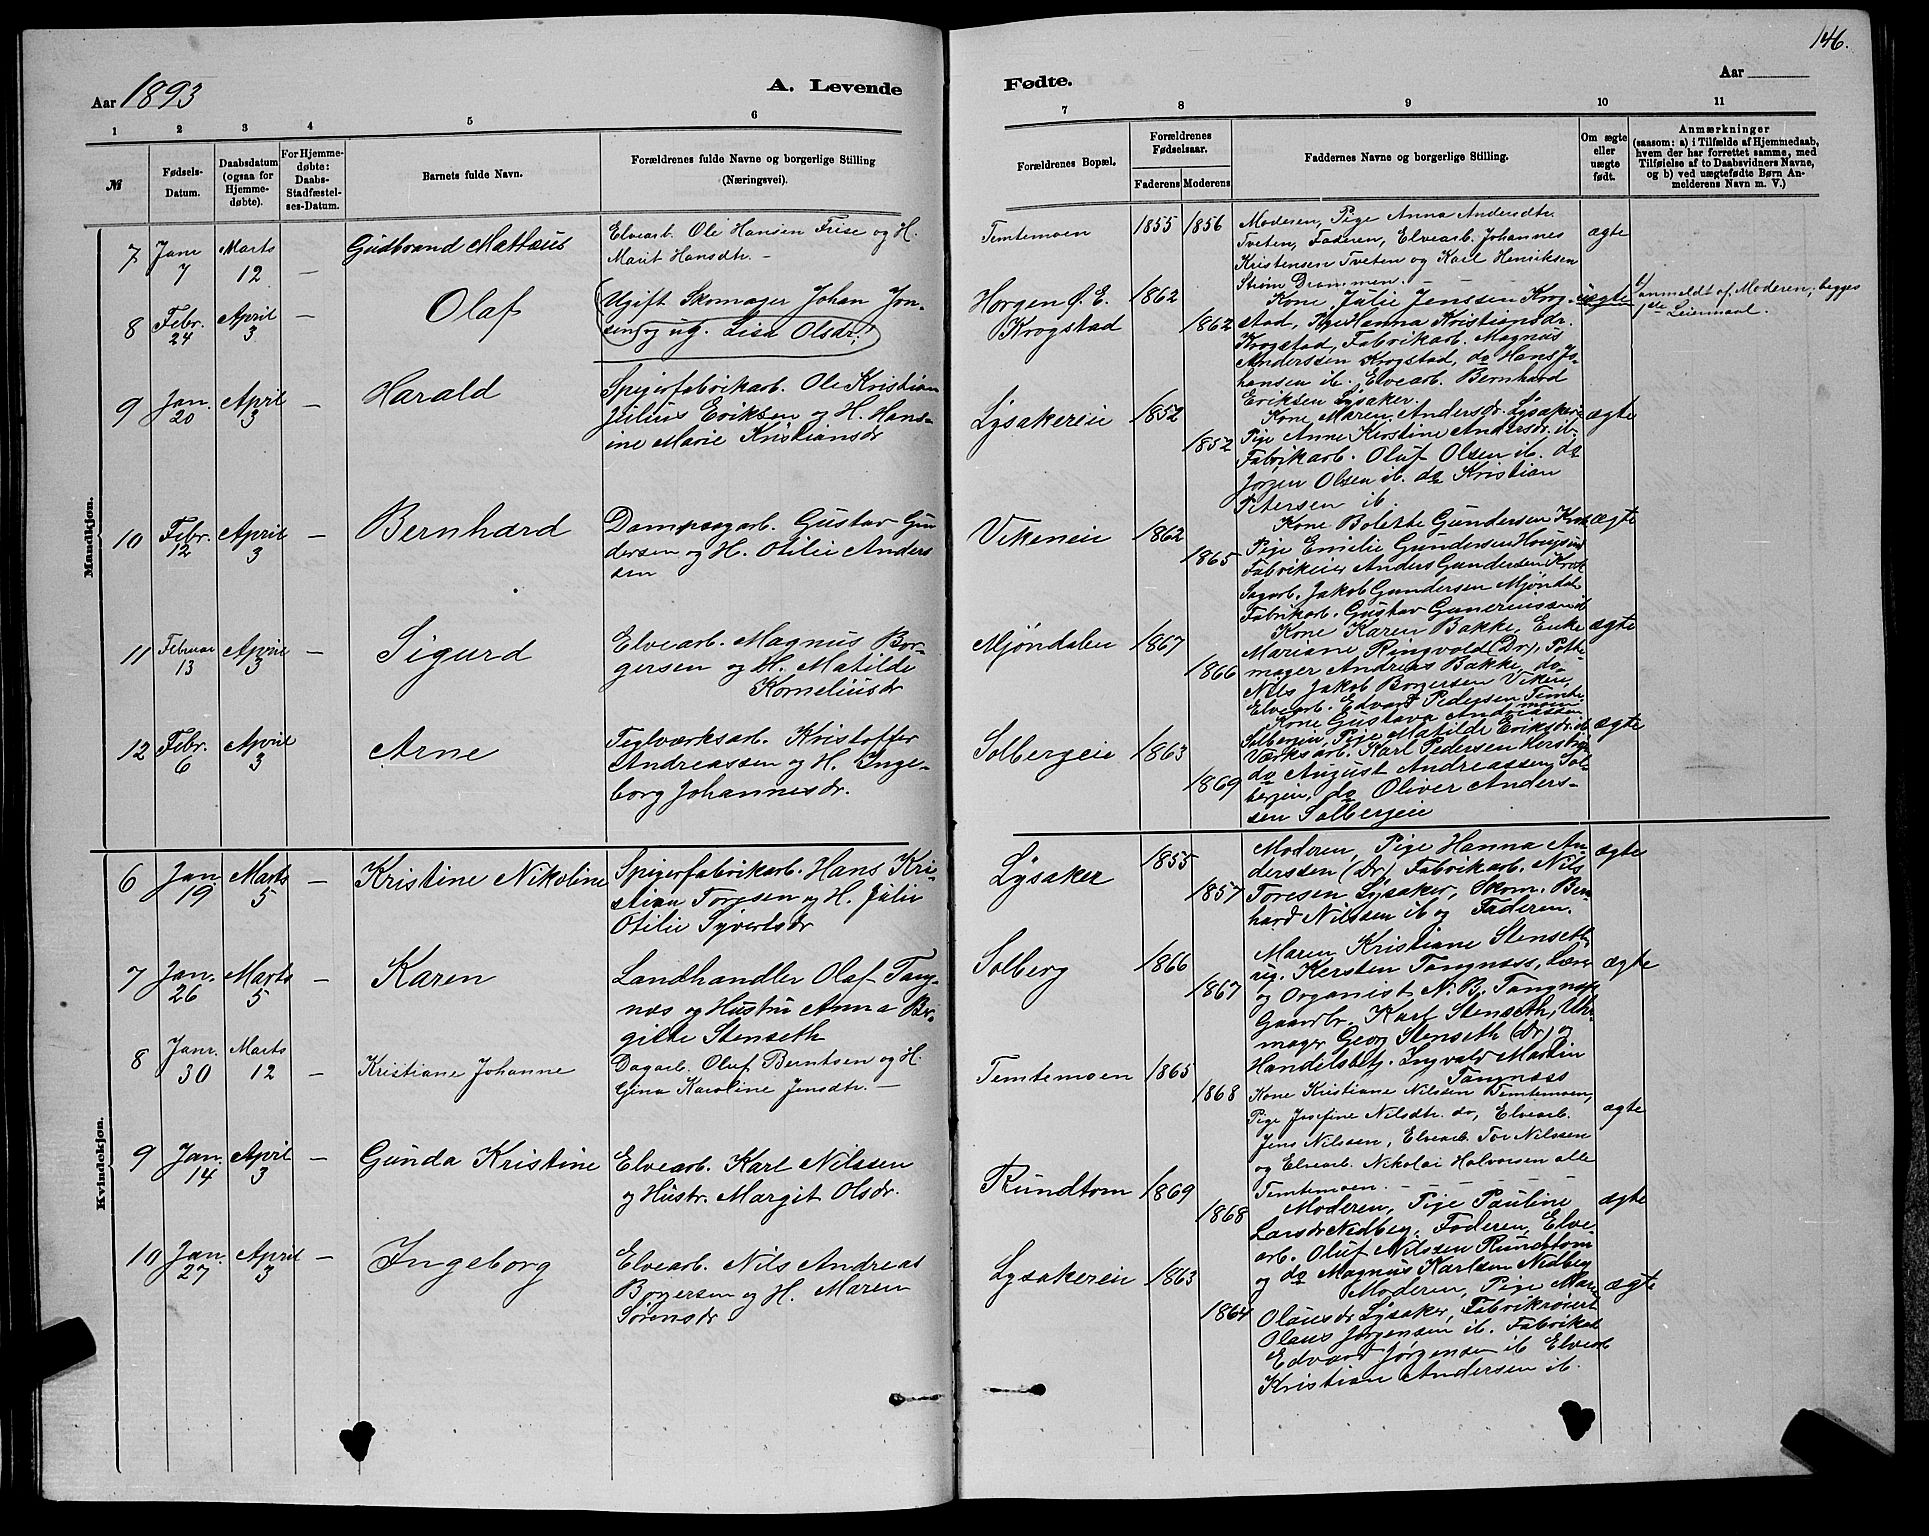 146.
Aar 1893
A. Levende
Fødte.
Aar
1
2
3
4
5
6
7
8
9
10
11
№
Fødsels-
Datum.
Daabsdatum
(ogsaa for
Hjemme-
døbte).
For Hjemme-
døbte:
Daabs-
Stadfæstel-
ses-Datum.
Barnets fulde Navn.
Forældrenes fulde Navne og borgerlige Stilling
(Næringsvei).
Forældrenes Bopæl.
Forældrenes
Fødselsaar.
Faderens
Moderens
Faddernes Navne og borgerlige Stilling.
Om ægte
eller
uægte
født.
Anmærkninger
(saasom: a) i Tilfælde af Hjemmedaab,
hvem der har forrettet samme, med
Tilføielse af to Daabsvidners Navne,
og b) ved uægtefødte Børn An-
melderens Navn m. V.)
Mandkjøn.
7
Janr
7
Marts
12
—
Gudbrand Mattæus
Elvearb. Ole Hansen Frise og H.
Marit Hansdtr. —
Temtemoen
1855
1856
Moderen, Pige Anna Andersdtr.
Tveten, Faderen, Elvearb. Johannes
Kristensen Tveten og Karl Henriksen
Strøm Drammen.
ægte
8
Febr.
24
April
3
—
Olaf
Ugift Skomager Johan Jon-
sen og ug. Lisa Olsdr.
Horgen Ø. E.
Krogstad
1862
1862
Kone Julie Jenssen Krog-
stad, Pige Hanna Kristiansdr.
Krogstad, Fabrikarb. Magnus
Anderssen Krogstad, do Hans Jo-
hansen ib. Elvearb. Bernhard
Eriksen Lysaker.
uægte
anmeldt af Moderen; begges
1ste Leiermaal.
9
Jan.
20
April
3
—
Harald
Spigerfabrikarb. Ole Kristian
Julius Eriksen og H. Hans-
ine Marie Kristiansdr
Lysakereie
1852
1852
Kone Maren Andersdr. Lysaker
Pige Anne Kirstine Andersdr. ib.
Fabrikarb. Oluf Olsen ib. do
Jørgen Olsen ib. do Kristian
Petersen ib
ægte
10
Febr.
12
April
3
—
Bernhard
Dampsagarb. Gustav Gun-
dersen og H. Otilie Anders
sen
Vikeneie
1862
1865
Kone Bolette Gundersen Krok
Pige Emilie Gundersen Hougsund
Fabrikeier Anders Gundersen Krok
Sagarb. Jakob Gundersen Mjøndal
Fabrikarb. Gustav Gunerussen ib
ægte
11
Februar
13
April
3
—
Sigurd
Elvearb. Magnus Bor-
gersen og H. Matilde
Korneliusdr
Mjøndalen
1867
1866
Kone Karen Bakke, Enke
Mariane Ringvold (Dr), Potte-
mager Andreas Bakke, do
Nils Jakob Borgersen Viken,
Elvearb. Edvard Pedersen Temte-
moen
ægte
12
Febr.
6
April
3
—
Arne
Teglværksarb. Kristoffer
Andreassen og H. Inge-
borg Johannesdr.
Solbergeie
1863
1869
Kone Gustava Andreassen
Solbergeie, Pige Matilde Eriksdr. ib
Værksarb. Karl Pedersen
do August Andreassen Sol-
bergeie, do Oliver Anders-
sen Solbergeie
ægte
Kvindekjøn.
6
Jan.
19
Marts
5
—
Kristine Nikoline
Spigerfabrikarb. Hans Kri-
stian Toresen og H. Julie
Otilie Syvertsdr
Lysaker
1855
1857
Moderen, Pige Hanna An-
derssen (Dr), Fabrikarb. Nils
Toresen Lysaker, Skom. Bern-
hard Nilssen ib og Faderen.
ægte
7
Jan.
26
Marts
5
—
Karen
Landhandler Olaf Tang-
næs og Hustru Anna Bir-
gitte Stenseth
Solberg
1866
1867
Maren Kristiane Stenseth
ug. Kersten Tangnæss, Lærer
og Organist N. B. Tangnæs
Gaardbr. Karl Stenseth, Uhr-
mager Georg Stenseth (dr) og
Handelsbetj. Ingvald Martin
Tangnæss
ægte
8
Janr.
30
Marts
12
—
Kristiane Johanne
Dagarb. Oluf Berntsen og H.
Gina Karoline Jensdtr. —
Temtemoen
1865
1868
Kone Kristiane Nilssen Temtemoen,
Pige Josefine Nilsdtr. do, Elvearb.
Jens Nilssen, Elvearb. Tor Nilssen
og Elvearb. Nikolai Halvorsen alle
Temtemoen.
ægte
9
Jan.
14
April
3
—
Gunda Kristine
Elvearb. Karl Nilssen
og Hustr. Margit Olsdr.
Rundtom
1869
1868
Moderen, Pige Pauline
Larsdr Nedberg, Faderen, Elve-
arb. Oluf Nilssen Rundtom
og do Magnus Karlsen Nedberg
ægte
10
Jan.
27
April
3
—
Ingeborg
Elvearb. Nils Andreas
Borgersen og H. Maren
Sørensdr
Lysakereie
1863
1864
Moderen, Pige Maren
Olausdr Lysaker, Fabrikreiert
Olaus Jørgensen ib. Fabrikarb
Edvard Jørgensen ib Elvearb
Kristian Andersen ib.
ægte